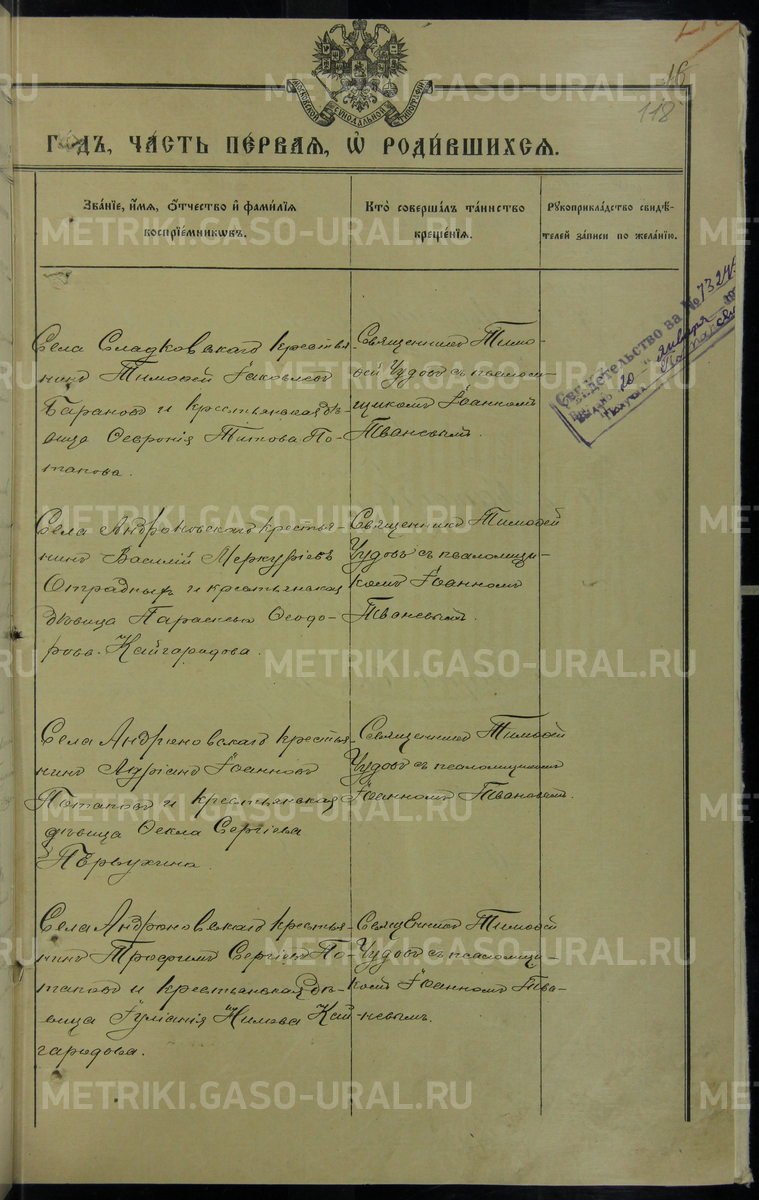 16
118
МОСКОВСКОЙ СУНОДАЛЬНОЙ ТИПОГРАФІИ
ГОДЪ, ЧАСТЬ ПЕРВАЯ, Ѡ РОДИВШИХСЯ.
Званіе, имя, отчество и фамилія
воспріемниковъ.
Кто совершалъ таинство
крещенія.
Рукоприкладство свидѣ-
телей записи по желанію.
Села Сладковскаго крестья-
нинъ Тимофей Іаковлевъ
Барановъ и крестьянская дѣ-
вица Ѳеѵронія Титова По-
тапова.
Священникъ Тимо-
ѳей Чудовъ съ псаломщи-
щикомъ Іоанномъ
Ивановымъ.
Свидѣтельство за №
Выдано 20 " января
Получилъ
Села Андроновскаго крестья-
нинъ Василій Меркурьевъ
Отрадныхъ и крестьянская
дѣвица Параскева Ѳеодо-
рова Кайгародова.
Священникъ Тимофей
Чудовъ съ псаломщи-
комъ Іоанномъ
Ивановымъ.
Села Андроновскаго крестья-
нинъ Адріанъ Іоанновъ
Потаповъ и крестьянская
дѣвица Ѳекла Сергіева
Первухина
Священникъ Тимоѳей
Чудовъ съ псаломщикомъ
Іоанномъ Ивановымъ.
Села Андроновскаго крестья-
нинъ Трофимъ Сергіевъ По-
таповъ и крестьянская дѣ-
вица Іуліанія Кай-
гародова.
Священникъ Тимоѳей
Чудовъ съ псаломщи-
комъ Іоанномъ Ива-
новымъ.
METRIKI.GASO-URAL.RU